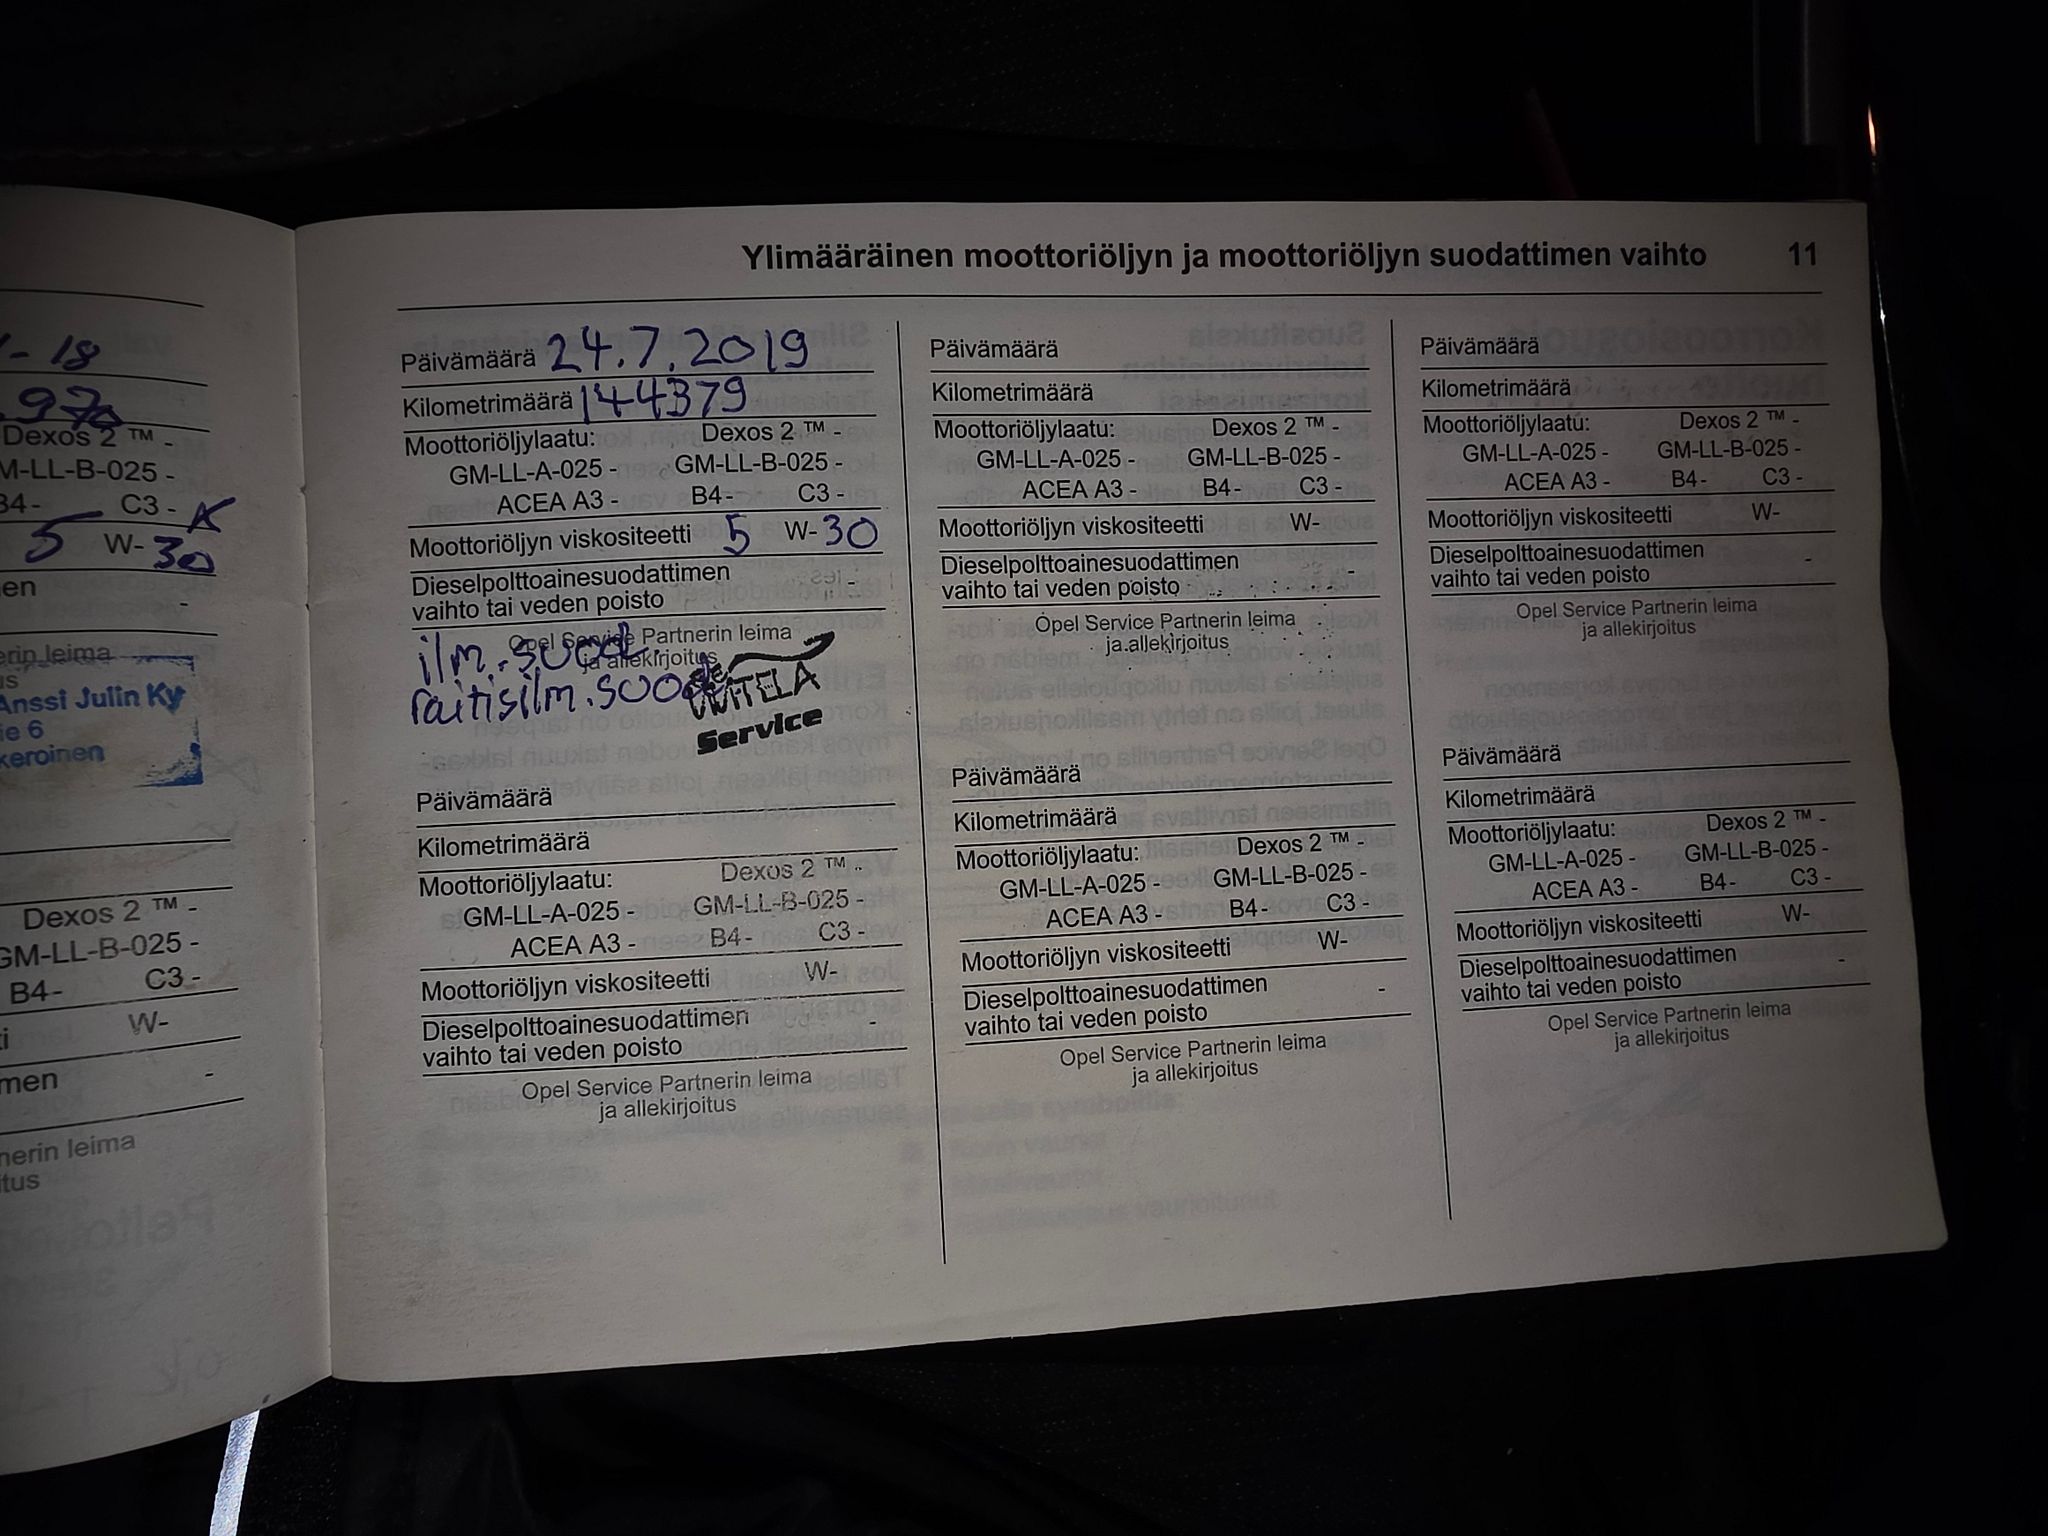 - 18
970
Dexos 2 ™ -
M-LL-B-025 -
B4- C3 - K
5 W- 30
en
-
erin leima
us
Anssi Julin Ky
ie 6
keroinen
Dexos 2 ™ -
GM-LL-B-025 -
B4- C3 -
ti W-
men -
nerin leima
itus
Ylimääräinen moottoriöljyn ja moottoriöljyn suodattimen vaihto 11
Päivämäärä 24.7.2019
Kilometrimäärä 144379
Moottoriöljylaatu: Dexos 2 ™ -
GM-LL-A-025 - GM-LL-B-025 -
ACEA A3 - B4- C3 -
Moottoriöljyn viskositeetti 5 W- 30
Dieselpolttoainesuodattimen -
vaihto tai veden poisto
Opel Service Partnerin leima
ja allekirjoitus
ilm.suod.
raitisilm.suod
Service
Päivämäärä
Kilometrimäärä
Moottoriöljylaatu: Dexos 2 ™ -
GM-LL-A-025 - GM-LL-B-025 -
ACEA A3 - B4- C3 -
Moottoriöljyn viskositeetti W-
Dieselpolttoainesuodattimen -
vaihto tai veden poisto
Opel Service Partnerin leima
ja allekirjoitus
Päivämäärä
Kilometrimäärä
Moottoriöljylaatu: Dexos 2 ™ -
GM-LL-A-025 - GM-LL-B-025 -
ACEA A3 - B4- C3 -
Moottoriöljyn viskositeetti W-
Dieselpolttoainesuodattimen -
vaihto tai veden poisto
Opel Service Partnerin leima
ja allekirjoitus
Päivämäärä
Kilometrimäärä
Moottoriöljylaatu: Dexos 2 ™ -
GM-LL-A-025 - GM-LL-B-025 -
ACEA A3 - B4- C3 -
Moottoriöljyn viskositeetti W-
Dieselpolttoainesuodattimen -
vaihto tai veden poisto
Opel Service Partnerin leima
ja allekirjoitus
Päivämäärä
Kilometrimäärä
Moottoriöljylaatu: Dexos 2 ™ -
GM-LL-A-025 - GM-LL-B-025 -
ACEA A3 - B4- C3 -
Moottoriöljyn viskositeetti W-
Dieselpolttoainesuodattimen -
vaihto tai veden poisto
Opel Service Partnerin leima
ja allekirjoitus
Päivämäärä
Kilometrimäärä
Moottoriöljylaatu: Dexos 2 ™ -
GM-LL-A-025 - GM-LL-B-025 -
ACEA A3 - B4- C3 -
Moottoriöljyn viskositeetti W-
Dieselpolttoainesuodattimen -
vaihto tai veden poisto
Opel Service Partnerin leima
ja allekirjoitus